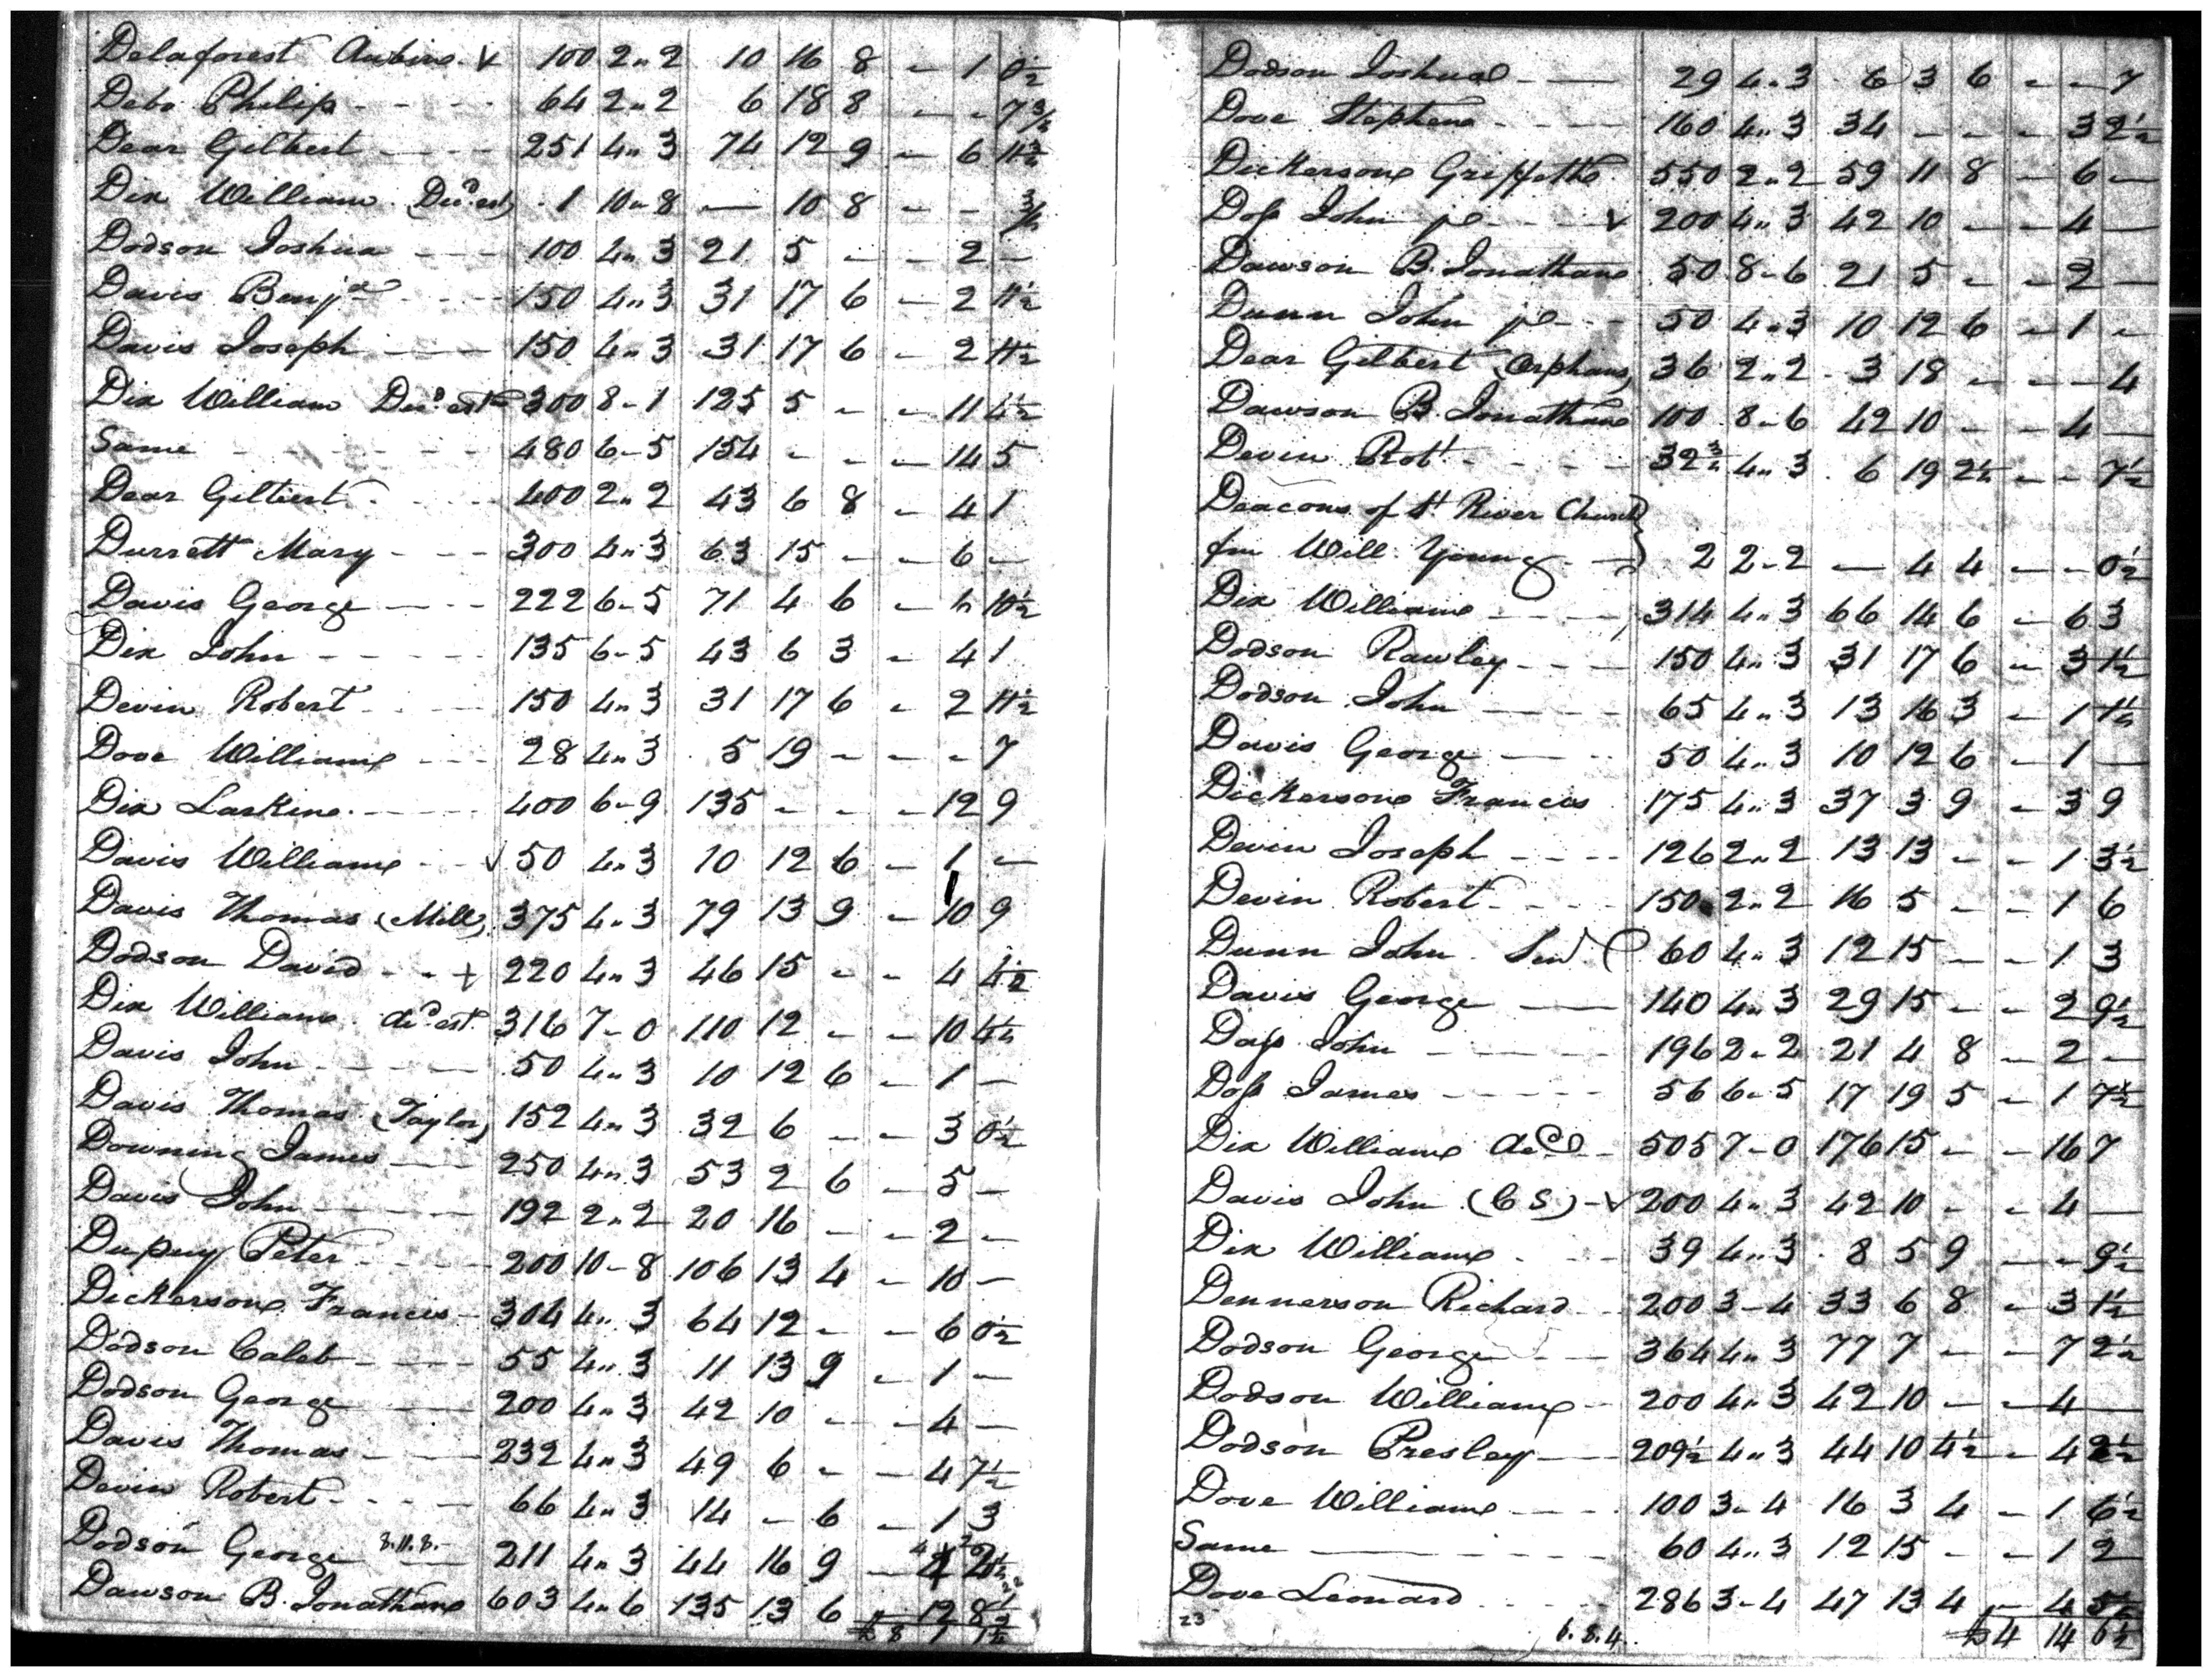 Delaforest Aubine √ 100 2"2 10 16 8 - 1 0½
Debo Philip - - - - 64 2"2 6 18 8 - - 7¾
Dear Gilbert - - - - 251 4"3 74 12 9 - 6 11½
Dix William Decd. est, 1 10"8 - 10 8 - - ¾
Dodson Joshua - - - 100 4"3 21 5 - - 2 -
Davis Benja - - - - 150 4"3 31 17 6 - 2 11½
Davis Joseph - - - 150 4"3 31 17 6 - 2 11½
Dix William Decd. est 300 8-1 125 5 - - 11 4½
Same - - - - 480 6-5 154 - - - 14 5
Dear Gilbert - - - 400 2"2 43 6 8 - 4 1
Durrett Mary - - - 300 4"3 63 15 - - 6 -
Davis George - - - 222 6-5 71 4 6 - 10½
Dix John - - - - 135 6-5 43 6 3 - 4 1
Devin Robert - - - 150 4"3 31 17 6 - 2 11½
Dove William - - - 28 4"3 5 19 - - - 7
Dix Larkine - - - 400 6-9 135 - - - 12 9
Davis William - - √ 50 4"3 10 12 6 - 1 -
Davis Thomas (Mill) 375 4"3 79 13 9 - 10 9
Dodson David - - + 220 4"3 46 15 - - 4 4½
Dix William decd. est. 316 7-0 110 12 - - 10 4½
Davis John - - - 50 4"3 10 12 6 - 1 -
Davis Thomas (Taylor) 152 4"3 32 6 - - 3 0½
Downing James - - 250 4"3 53 2 6 - 5 -
Davis John - - - 192 2"2 20 16 - - 2 -
Dupuy Peter - - - 200 10-8 106 13 4 - 10 -
Dickerson Francis - 304 4"3 64 12 - - 6 0½
Dodson Caleb - - - 55 4"3 11 13 9 - 1 -
Dodson George - - 200 4"3 42 10 - - 4 -
Davis Thomas - - - 232 4"3 49 6 - - 4 7½
Devin Robert - - - 66 4"3 14 - 6 - 1 3
Dodson George 8.11.8. - 211 4"3 44 16 9 - 4 2½
Dawson B. Jonathan 603 4"6 135 13 6 - 12 8½
£ 8 1 1½
Dodson Joshua - - 29 4"3 6 3 6 - - 7
Dove Stephen - - - 160 4"3 34 - - - 3 2½
Dickerson Griffith 550 2"2 59 11 8 - 6 -
Doss John jr - - √ 200 4"3 42 10 - - 4 -
Dawson B. Jonathan 50 8-6 21 5 - - 2 -
Dunn John jr - - 50 4"3 10 12 6 - 1 -
Dear Gilbert (Orphans) 36 2"2 3 18 - - - 4
Dawson B. Jonathan 100 8-6 42 10 - - 4 -
Devin Robt - - - - 32¾ 4"3 6 19 2½ - - 7½
Deacons of St River Church }
fm Will Young - - } 2 2-2 - 4 4 - - 0½
Dix William - - - 314 4"3 66 14 6 - 6 3
Dodson Rawley - - - 150 4"3 31 17 6 - 3 1½
Dodson John - - - 65 4"3 13 16 3 - 1 1½
Davis George - - - 50 4"3 10 12 6 - 1 -
Dickerson Francis 175 4"3 37 3 9 - 3 9
Devin Joseph - - - 126 2"2 13 13 - - 1 3½
Devin Robert - - - 150 2"2 16 5 - - 1 6
Dunn John Senr. 60 4"3 12 15 - - 1 3
Davis George - - 140 4"3 29 15 - - 2 9½
Doss John - - - 196 2-2 21 4 8 - 2 -
Doss James - - - 56 6-5 17 19 5 - 1 7½
Dix William decd - 505 7-0 176 15 - - 16 7
Davis John (C S) - √ 200 4"3 42 10 - - 4 -
Dix William - - - 39 4"3 8 5 9 - - 9½
Dennerson Richard - - 200 3-4 33 6 8 - 3 1½
Dodson George - - 364 4"3 77 7 - - 7 2½
Dodson William - 200 4"3 42 10 - - 4 -
Dodson Presley - - 209½ 4"3 44 10 4½ - 4 2½
Dove William - - - 100 3-4 16 3 4 - 1 6½
Same - - - - 60 4"3 12 15 - - 1 2
Dove Leonard - - - 286 3-4 47 13 4 - 4 5½
23 6.8.4. £4 14 6½